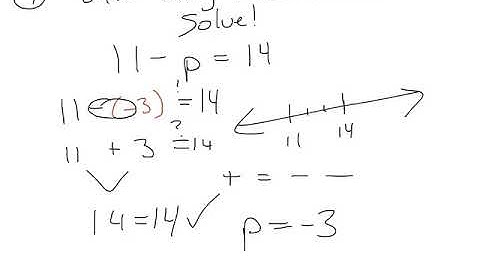 Solve!
11 - p = 14
11 - (-3) ?= 14
11 + 3 ?= 14
11 14
+ = - -
14 = 14 ✓
p = -3